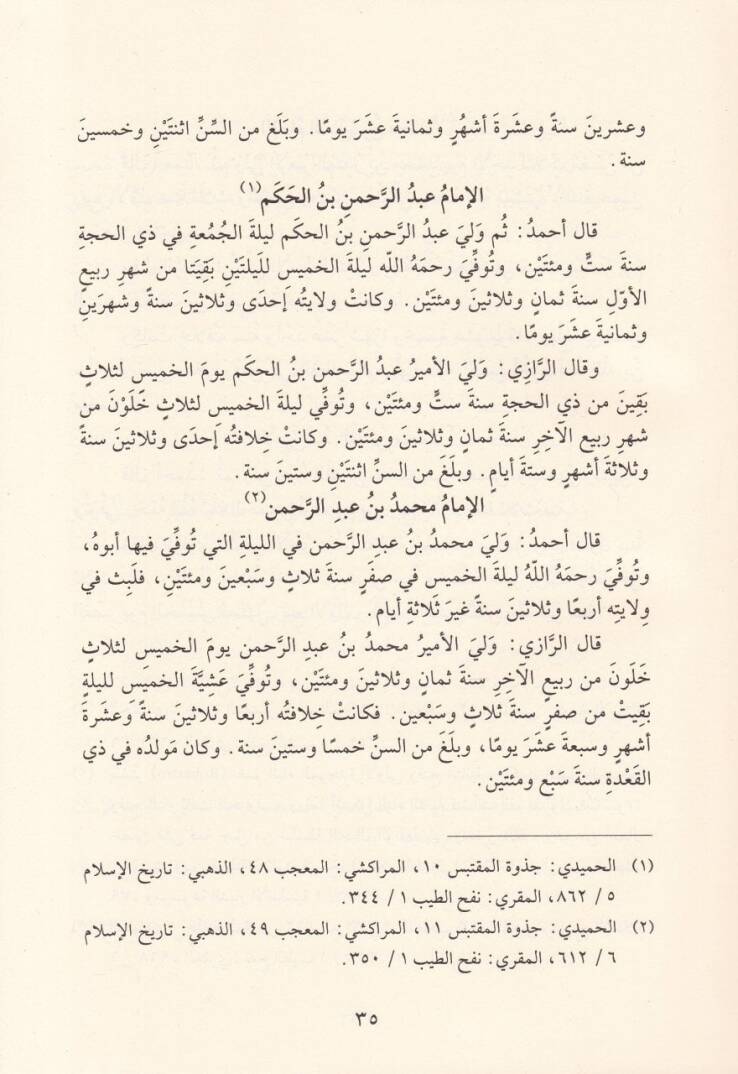 وعشرينَ سنةً وعشَرةَ أشهُرٍ وثمانيةَ عشَرَ يومًا. وبَلَغ من السِّنِّ اثنتَيْنِ وخمسينَ
سنة.
الإمامُ عبدُ الرَّحمنِ بنُ الحَكَم(١)
قال أحمدُ: ثُم وَليَ عبدُ الرَّحمنِ بنُ الحكَم ليلةَ الجُمُعةِ في ذي الحجةِ
سنةَ ستٍّ ومئتَيْن، وتُوفِّيَ رحمَهُ اللّه ليلةَ الخميس للَيلتَيْنِ بَقِيَتَا من شهرِ ربيعٍ
الأوّلِ سنةَ ثمانٍ وثلاثينَ ومئتَيْن. وكانتْ ولايتُه إحدَى وثلاثينَ سنةً وشهرَينِ
وثمانيةَ عشَرَ يومًا.
وقال الرَّازِي: وَليَ الأميرُ عبدُ الرَّحمن بنُ الحكَم يومَ الخميس لثلاثٍ
بَقِينَ من ذي الحجةِ سنةَ ستٍّ ومئتَيْن، وتُوفِّي ليلةَ الخميس لثلاثٍ خَلَوْنَ من
شهرِ ربيع الآخِرِ سنةَ ثمانٍ وثلاثينَ ومئتَيْن. وكانتْ خِلافتُه إحدَى وثلاثينَ سنةً
وثلاثةَ أشهرٍ وستةَ أيامٍ. وبلَغَ من السنِّ اثنتَيْنِ وستينَ سنة.
الإمامُ محمدُ بنُ عبدِ الرَّحمن(٢)
قال أحمدُ: وَليَ محمدُ بنُ عبدِ الرَّحمن في الليلةِ التي تُوفِّيَ فيها أبوهُ،
وتُوفِّيَ رحمَهُ اللّهُ ليلةَ الخميس في صفَرٍ سنةَ ثلاثٍ وسَبْعينَ ومئتَيْنِ، فلَبِث في
وِلايتِه أربعًا وثلاثينَ سنةً غيرَ ثلاثةِ أيام.
قال الرَّازي: وَليَ الأميرُ محمدُ بنُ عبدِ الرَّحمن يومَ الخميس لثلاثٍ
خَلَونَ من ربيعٍ الآخِرِ سنةَ ثمانٍ وثلاثينَ ومئتَيْن، وتُوفِّيَ عَشِيَّةَ الخميَس لليلةٍ
بَقِيتْ من صفرٍ سنةَ ثلاثٍ وسَبْعين. فكانتْ خِلافتُه أربعًا وثلاثينَ سنةً وعشَرةَ
أشهرٍ وسبعةَ عشَرَ يومًا، وبلَغَ من السنِّ خمسًا وستينَ سنة. وكان مَولدُه في ذي
القَعْدةِ سنةَ سَبْع ومئتَيْن.
(١) الحميدي: جذوة المقتبس ١٠، المراكشي: المعجب ٤٨، الذهبي: تاريخ الإسلام
٥ / ٨٦٢، المقري: نفح الطيب ١ / ٣٤٤.
(٢) الحميدي: جذوة المقتبس ١١، المراكشي: المعجب ٤٩، الذهبي: تاريخ الإسلام
٦ / ٦١٢، المقري: نفح الطيب ١ / ٣٥٠.
٣٥